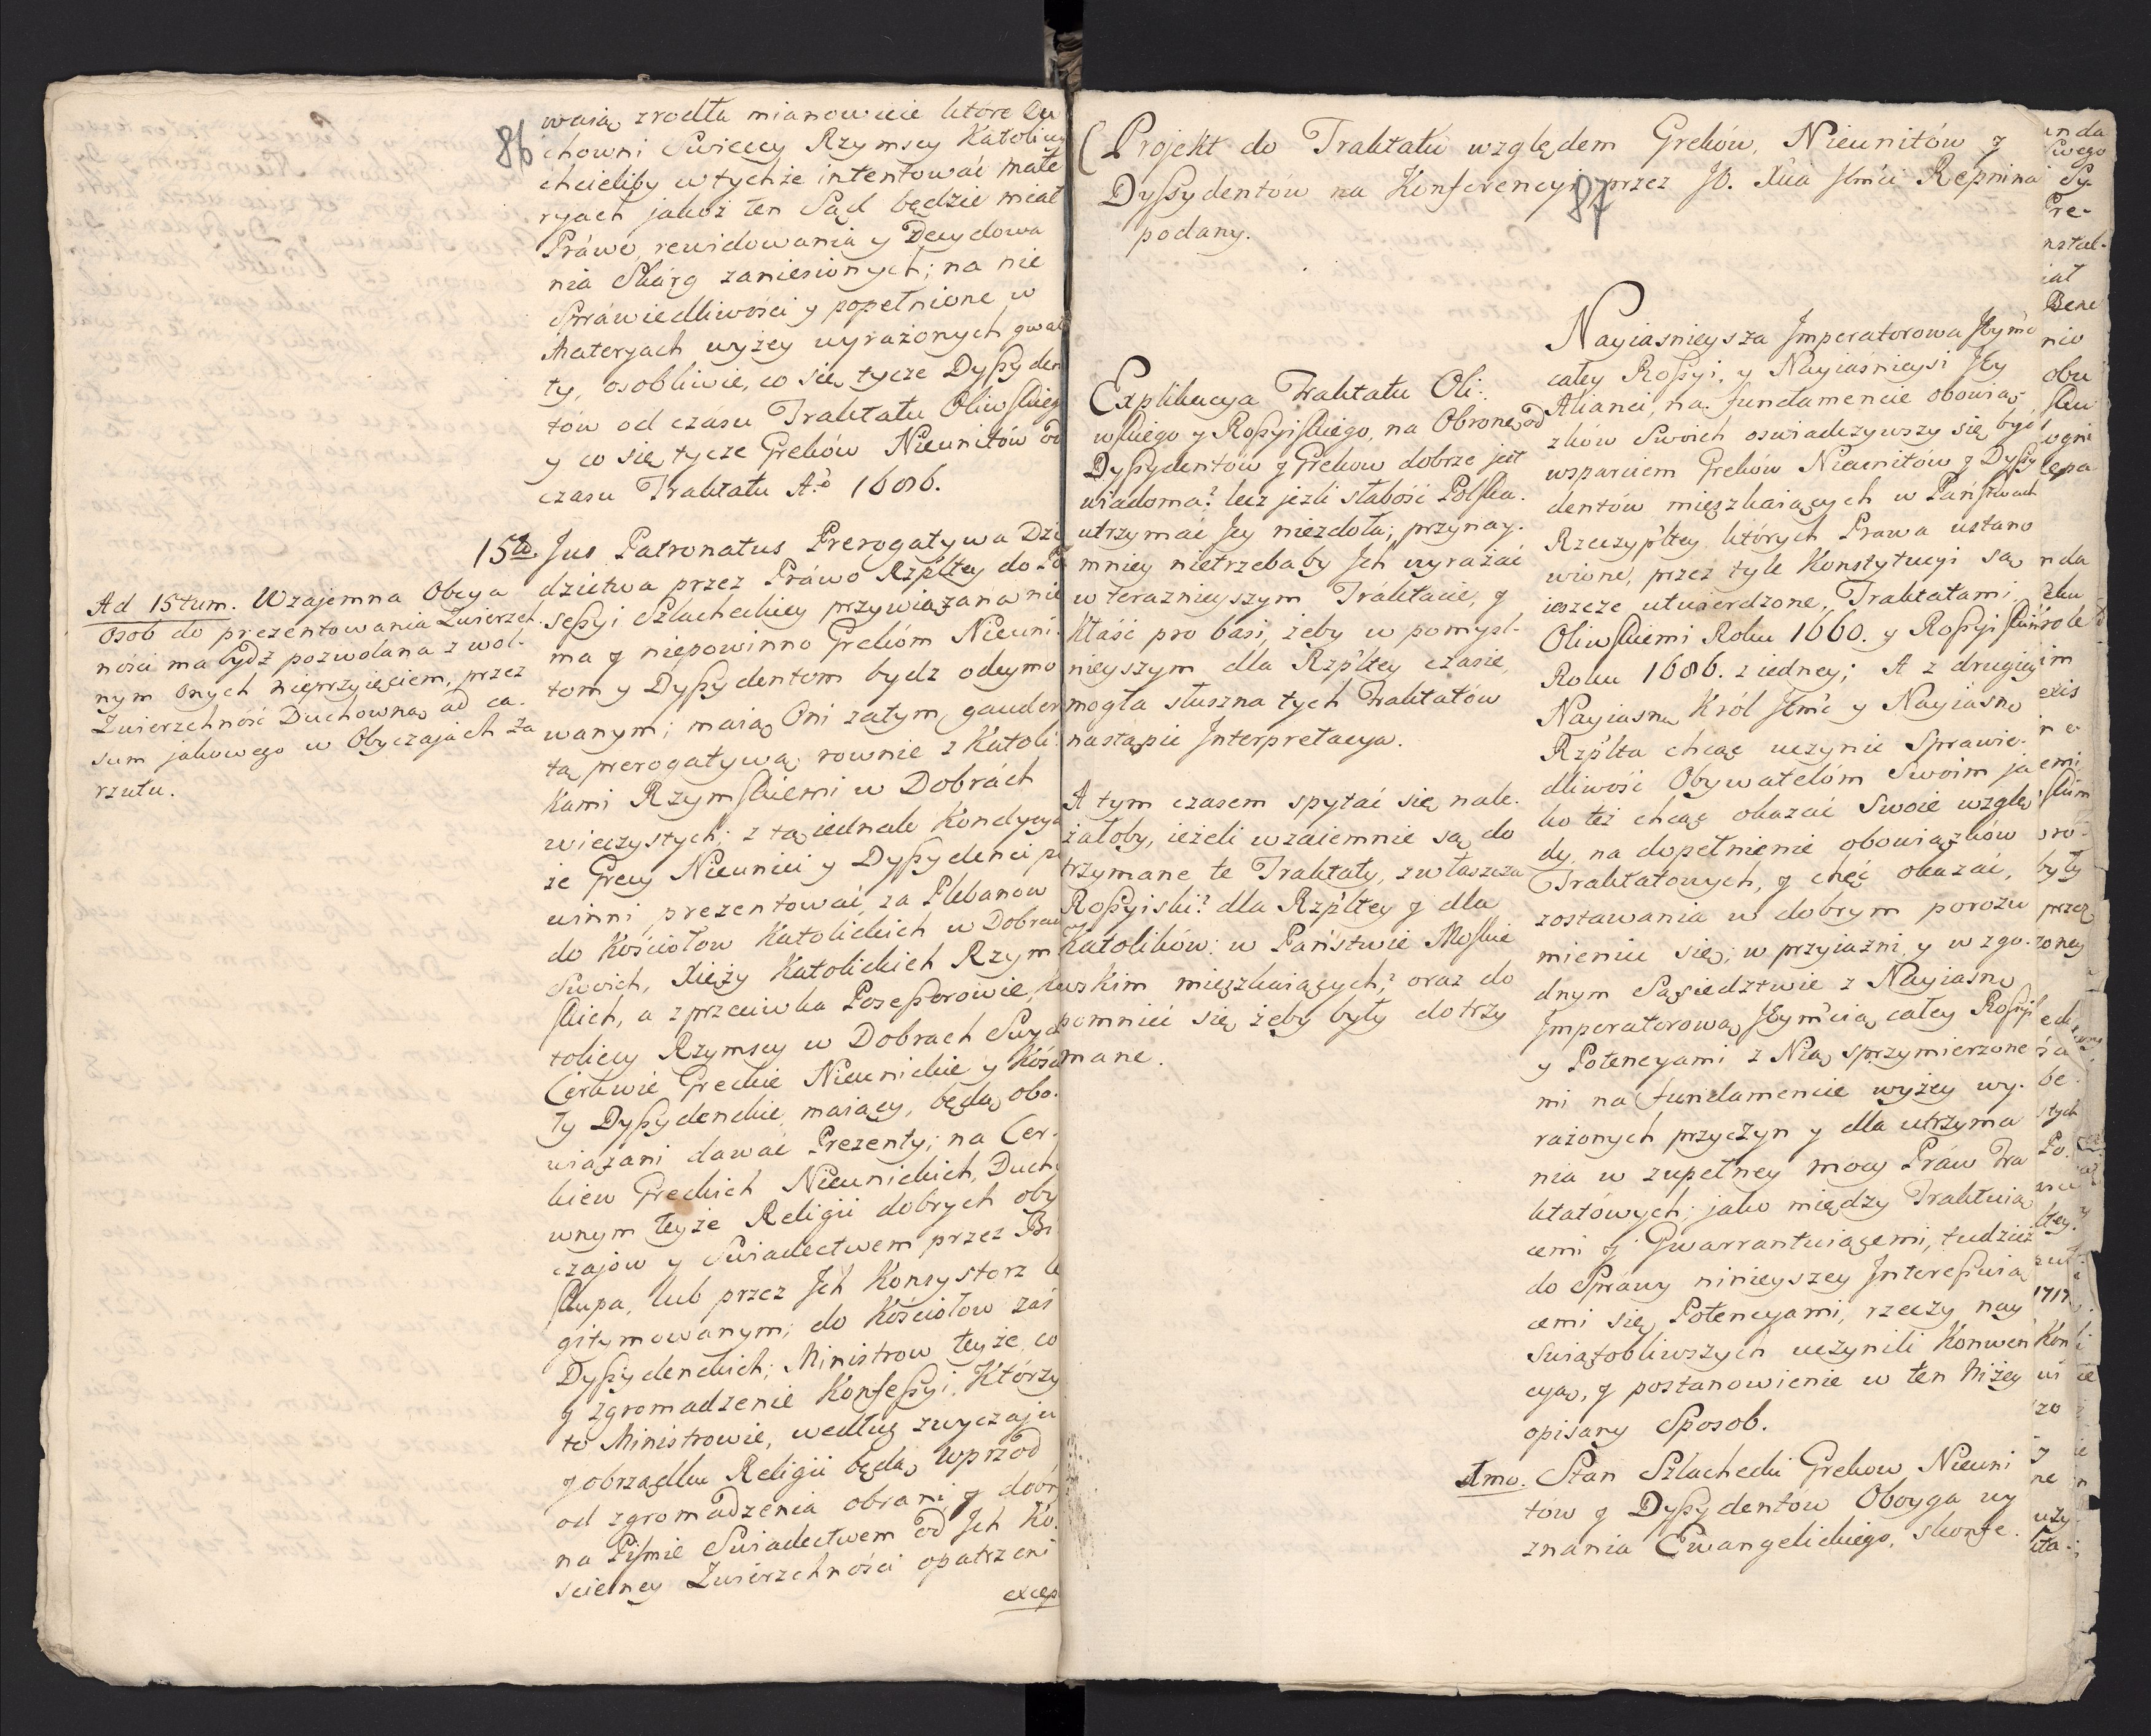 86
waią zrodła mianowicie które Du
chowni Swieccy Rzymscy Katolicy
chcieliby w tychże intentować mate
ryach jakoż ten Sąd będzie miał
Práwo, rewidowania y Decydowa
nia Skárg zaniesionych; na nie
Spráwiedliwości y popełnione w
Materyach wyżey wyrażonych gwał
ty, osobliwie, co się tycze Dyßyden
tów od czásu Traktatu Oliwskiego
y co się tycze Greków Nieunitów od
czasu Traktatu A.o 1686.
15to. Jus Patronatus Prerogatywa Dzie
dzictwa przez Práwo Rzpltey do Po
seßyi Szlacheckiey przywiązana nie
ma y niepowinno Grekóm Nieuni
tom y Dyßydentom bydz odeymo
wanym; maią Oni zatym, gauder
tą prerogatywą rownie z Katoli
kami Rzymskiemi w Dobrách
wieczystych; z tą iednak Kondycyą
że Grecy Nieunici y Dyßydenci po
winni prezentować za Plebanow
do Kościołow Katolickich w Dobrach
Swoich, Xięży Katolickich Rzym
skich, a z przeciwka Poseßorowie, Ka
tolicy Rzymscy w Dobrach Swych
Cerkwie Greckie Nieunickie y Kościo
ły Dyßydenckie maiący, będą obo
wiązani dawać Prezenty; na Cer
kiew Greckich Nieunickich, Ducho
wnym teyże Religii dobrych oby
czajow y Swiadectwem przez Bi
skupa, lub przez Jch Konsystorz le
gitymowanym; do Kościołow zaś
Dyßydenckich; Ministrow teyże, co
y zgromadzenie Konfeßyi, Którzy
to Ministrowie, według zwyczaju
y obrządku Religii będą, wprzod
od zgromadzenia obrani, y dobr
na Piśmie Swiadectwem od Jch Ko
scielney Zwierzchności opatrzeni
excep
Ad 15tum. Wzajemna Obcya
Osob do prezentowania Zwierzch
ności ma bydź pozwolana z wol-
nym Onych nieprzyięciem, przez
Zwierzchność Duchowną, ad ca-
sum jakowego w Obyczajach Za
rzutu.
87
Projekt do Traktatu względem Greków, Nieunitów y
Dyßydentów na Konferencyi przez JO. Xcia Jmci Repnina
podany.
Explikacya Traktatu Oli-
wskiego y Roßyiskiego, na Obronę od
Dyßydentów y Grekow dobrze jest
wiadoma? lecz jeżli słabość Polska
utrzymać Jey niezdoła; przynay-
mniey nietrzebaby Jch wyrażać
w teraznieyszym Traktacie, y
kłaść pro basi, żeby w pomyśl-
nieyszym dla Rzpltey czasie,
mogła słuszna tych Traktatów
nastąpić Interpretacya.
A tym czasem spytać się nale-
żałoby, ieżeli wzaiemnie są do
trzymane te Traktaty, zwłaszcza
Roßyiski? dla Rzpltey y dla
Katolików: w Państwie Moskie
wskim mięszkaiących? oraz do
pomnieć się żeby były dotrzy
mane.
Nayiasnieysza Jmperatorowa Jeymć
całey Roßyi, y Nayiaśnieysi Jey
Alianci, na fundamencie obowią-
zków Swoich oswiadczywszy się być
wsparciem Greków Nieunitów y Dyßy
dentów mięszkaiących w Państwach
Rzeczypltey których Prawa ustano
wione, przez tyle Konstytucyi są
ieszcze utwierdzone, Traktatami
Oliwskiemi Roku 1660. y Roßyiskim
Roku 1686. z iedney; A z drugiey
Nayiasny Król Jmć y Nayiasna
Rzplta chcąc uczynic Sprawie-
dliwość Obywatelóm Swoim ja
ko też chcąc okazać Swoie wzglę
dy, na dopełnienie obowiązków
Traktatowych, y chęć okazać,
zostawania w dobrym porozu
mieniu się; w przyiazni y w zgo-
dnym Sąsiedztwie z Nayiasną
Jmperatorową Jeymcią całey Roßyi
y Potencyami z Nią sprzymierzone
mi na fundamencie wyżey wy-
rażonych przyczyn y dla utrzyma
nia w zupełney mocy Praw Tra
ktatówych; jako między Traktuią
cemi y Gwarrantuiącemi, tudzież
do Sprawy ninieyszey Jntereßuią
cemi się Potencyami, rzeczy nay
swiątobliwszych uczynili Konwen
cyą, y postanowienie w ten niżey
opisany Sposob.
1mo. Stan Szlachecki Grekow Nieuni
tow y Dyßydentów Oboyga wy
znania Ewangelickiego, skonfe